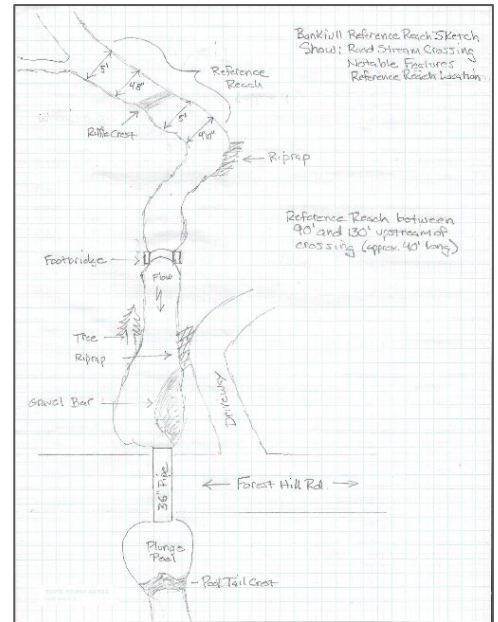 Bankfull Reference Reach Sketch
Show: Road Stream Crossing
Notable Features
Reference Reach Location
Reference
Reach
5'
4'8"
5'
Riffle Crest
Riprap
Reference Reach between
90' and 130' upstream of
crossing (approx. 40' long)
Footbridge
Flow
Tree
Riprap
Gravel Bar
Driveway
36" Pipe
Forest Hill Rd.
Plunge
Pool
Pool Tail Crest